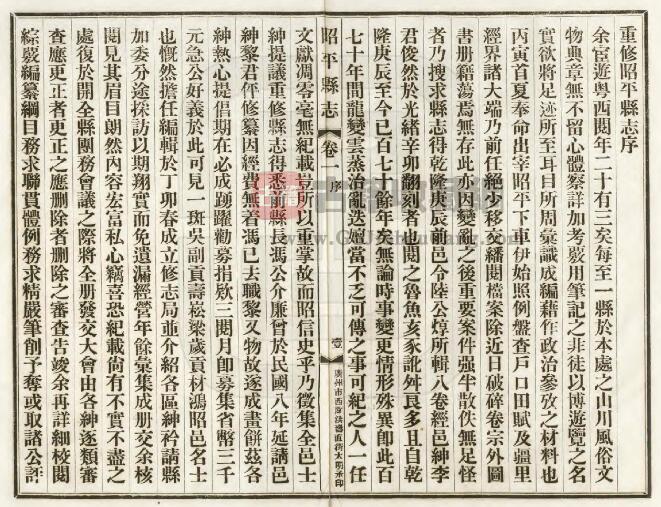 重修昭平縣志序
余宦遊粵西閱年二十有三矣每至一縣於本處之山川風俗文
物典章無不留心體察詳加考覈用筆記之非徒以博遊覽之名
實欲將足迹所至耳目所周彙識成編藉作政治參攷之材料也
丙寅首夏奉命出宰昭平下車伊始照例盤查戶口田賦及疆里
經界諸大端乃前任絕少移交繙閱檔案除近日破碎卷宗外圖
書册籍蕩焉無存此亦因變亂之後重要案件强半散佚無足怪
者乃搜求縣志得乾隆庚辰前邑令陸公焞所輯八卷經邑紳李
君俊然於光緒辛卯翻刻者也閱之魯魚亥豕訛舛良多且自乾
隆庚辰至今已百七十餘年矣無論時事變更情形殊異即此百
七十年間龍變雲蒸治亂迭嬗當不乏可傳之事可紀之人一任
昭平縣志 卷一 序 壹
文獻凋零毫無紀載豈所以重掌故而昭信史乎乃徵集全邑士
紳提議重修縣志得悉前縣長馮公介廉曾於民國八年延請邑
紳黎君伻修纂因經費無着馮已去職黎又物故遂成畫餅茲各
紳熱心提倡期在必成踴躍勸募捐欵三閱月即募集省幣三千
元急公好義於此可見一斑吳副貢壽崧梁歲貢材鴻昭邑名士
也慨然擔任編輯於丁卯春成立修志局並介紹各區紳衿請縣
加委分途採訪以期翔實而免遺漏經營年餘彙集成册交余核
閱見其眉目朗然內容宏富私心竊喜恐紀載倘有不實不盡之
處復於開全縣團務會議之際將全册發交大會由各紳逐類審
查應更正者更正之應刪除者刪除之審查告竣余再詳細校閱
綜覈編纂綱目務求聯貫體例務求精嚴筆削予奪或取諸公評